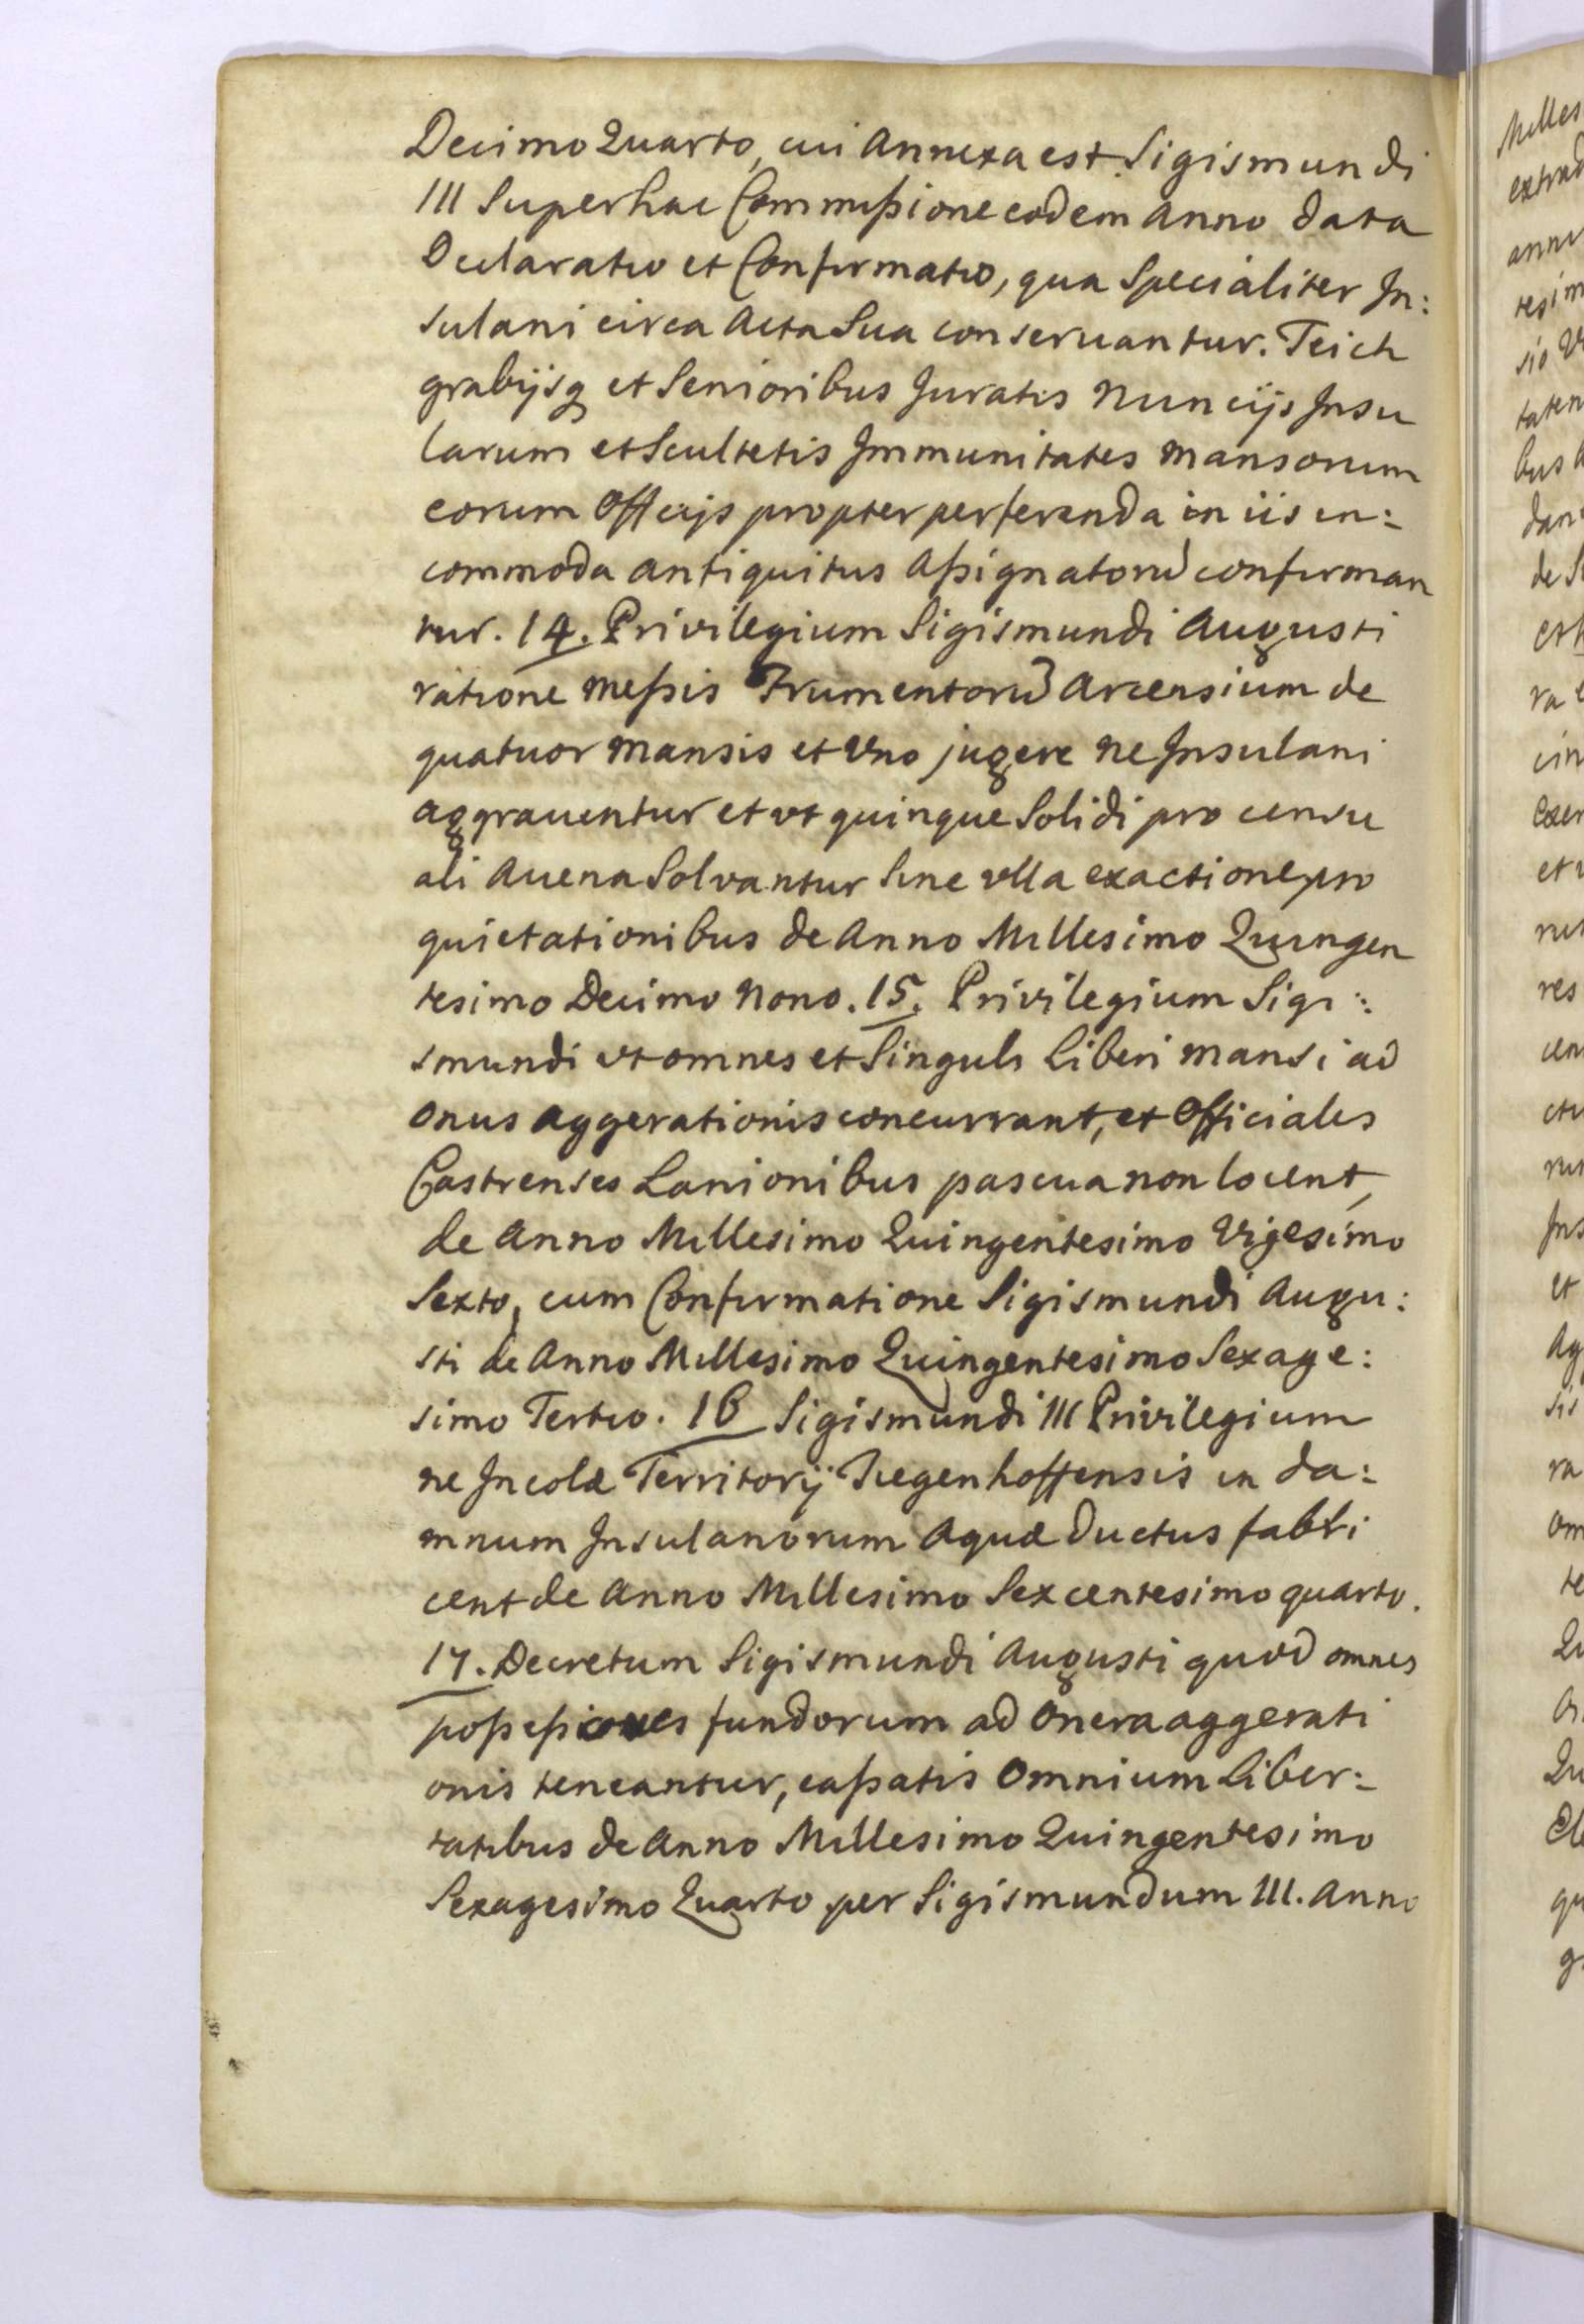 Decimo Quarto, cui Annexa est Sigismundi
III Super hac Commißione eodem Anno data
Declaratio et Confirmatio, qua Specialiter In:
sulani circa Acta Sua conseruantur. Teich
grabijsq et Senioribus Juratis Nuncijs Insu
larum et Scultetis Immunitates Mansorum
eorum Officijs propter perferenda in iis in:
commoda antiquitus Aßignatorũ confirman
tur. 14. Privilegium Sigismundi Augusti
ratione Meßis Frumentorũ Arcensium de
quatuor Mansis et Vno jugere Ne Insulani
aggrauentur et vt quinque Solidi pro censu
ali Auena Solvantur Sine vlla exactione pro
quietationibus de Anno Millesimo Quingen
tesimo Decimo Nono. 15. Privilegium Sigi:
smundi vt omnes et Singuli Liberi Mansi ad
onus Aggerationis concurrant, et Officiales
Castrenses Lanionibus pascua non locent,
de Anno Millesimo Quingentesimo Vigesimo
Sexto, cum Confirmatione Sigismundi Augu:
sti de Anno Millesimo Quingentesimo Sexage:
simo Tertio. 16 Sigismundi III Privilegium
ne Incolæ Territorij Tiegenhoffensis in da:
mnum Insulanorum Aquæ Ductus fabri
cent de Anno Millesimo Sexcentesimo quarto.
17. Decretum Sigismundi Augusti quod omnes
poßeßiones fundorum ad Onera aggerati
onis teneantur, caßatis Omnium Liber:
tatibus de Anno Millesimo Quingentesimo
Sexagesimo Quarto per Sigismundum III. Anno